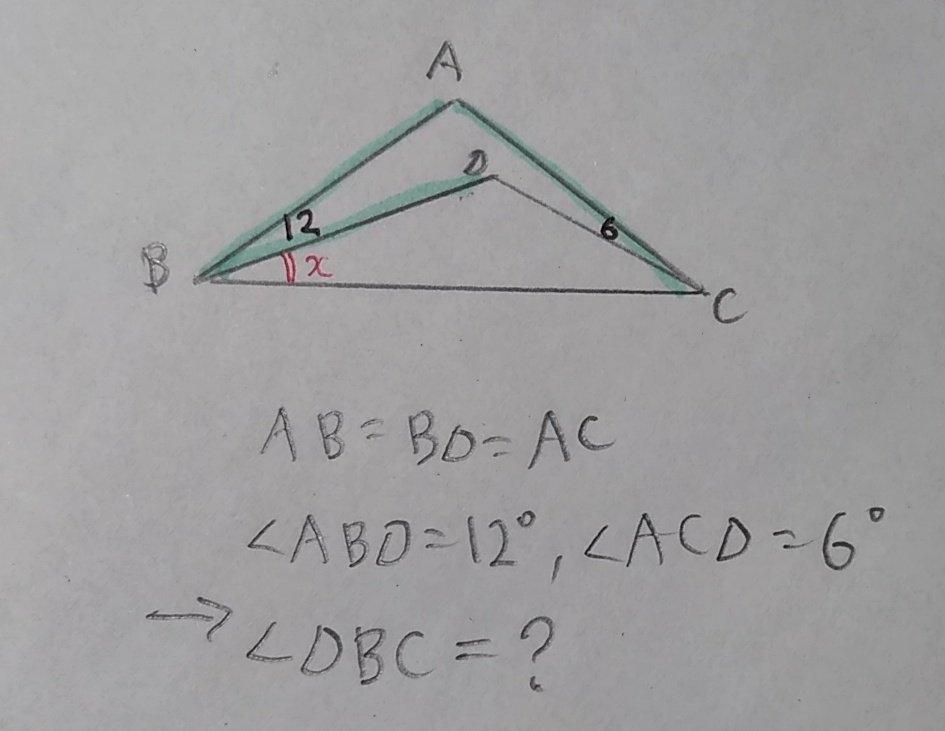 A
D
12
6
B
x
C
AB=BD=AC
∠ABD=12°, ∠ACD=6°
→ ∠DBC=?